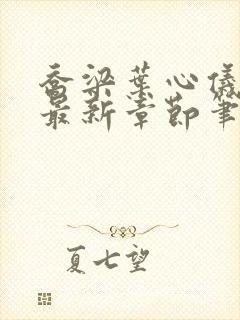 乔梁叶心仪
最新章节笔
夏七望